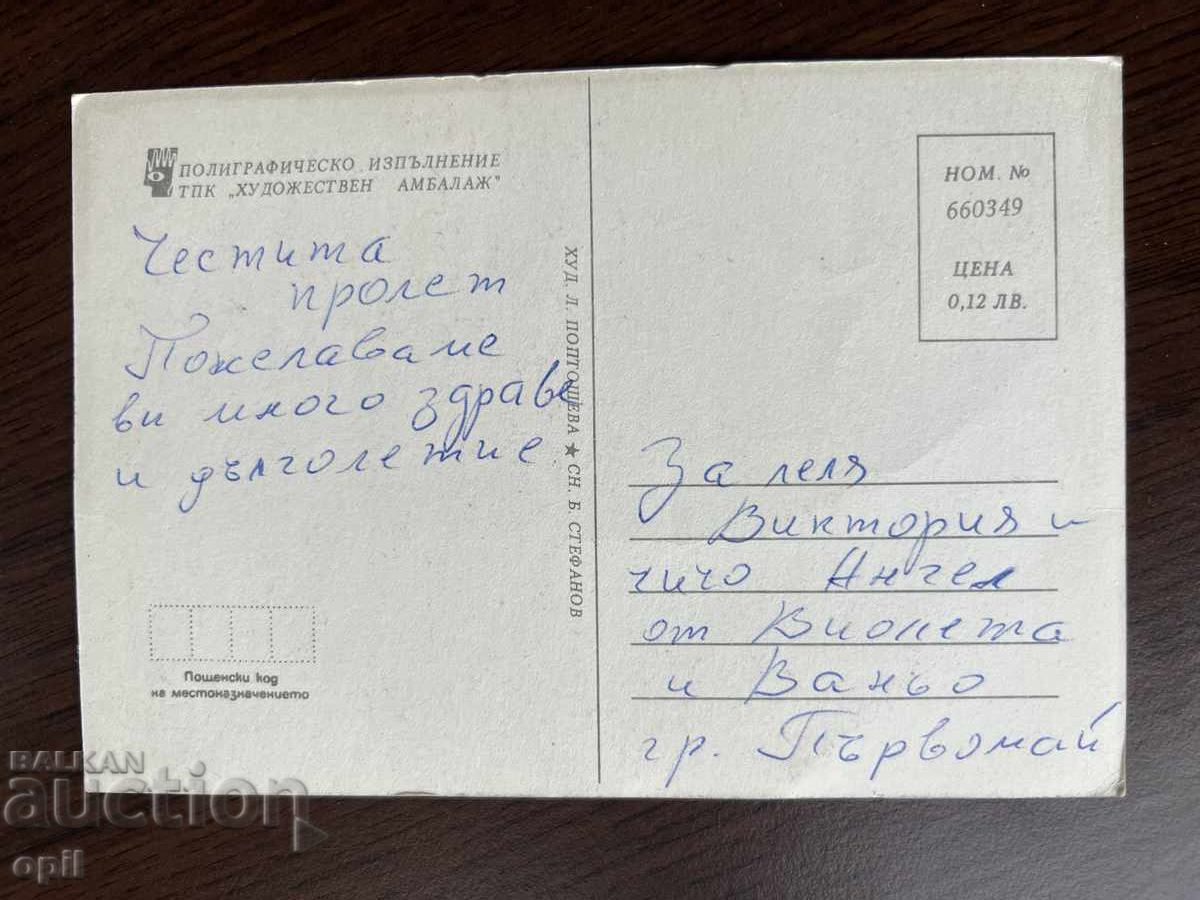 ПОЛИГРАФИЧЕСКО ИЗПЪЛНЕНИЕ
ТПК „ХУДОЖЕСТВЕН АМБАЛАЖ"
Честита
пролет
Пожелаваме
ви много здраве
и дълголетие
Пощенски код
на местоназначението
ХУД. Л. ПОПТОШЕВА ★ СН. Б. СТЕФАНОВ
НОМ. №
660349
ЦЕНА
0,12 ЛВ.
За леля
Виктория и
чичо Ангел
от Виолета
и Ваньо
гр. Първомай
BALKAN
auction
opil